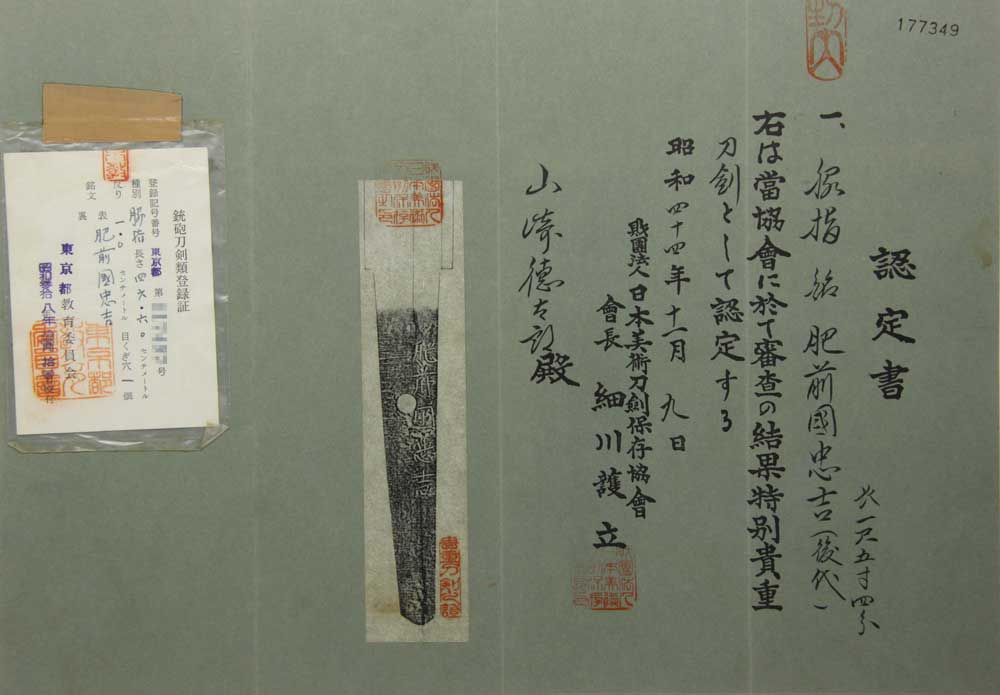 177349
認定書
一、脇指 銘 肥前國忠吉(後代)
長一尺五寸四分
右は當協會に於て審査の結果特別貴重
刀劍として認定する
昭和四十四年十一月九日
財團法人日本美術刀劍保存協會
會長 細川護立
山崎徳太郎殿
肥前國忠吉
銃砲刀剣類登録証
登録記号番号 東京都 第 号
種別 脇指 長さ 四六・六〇 センチメートル
反り 一・〇 センチメートル 目くぎ穴 一 個
銘文 表 肥前國忠吉
裏
東京都教育委員会